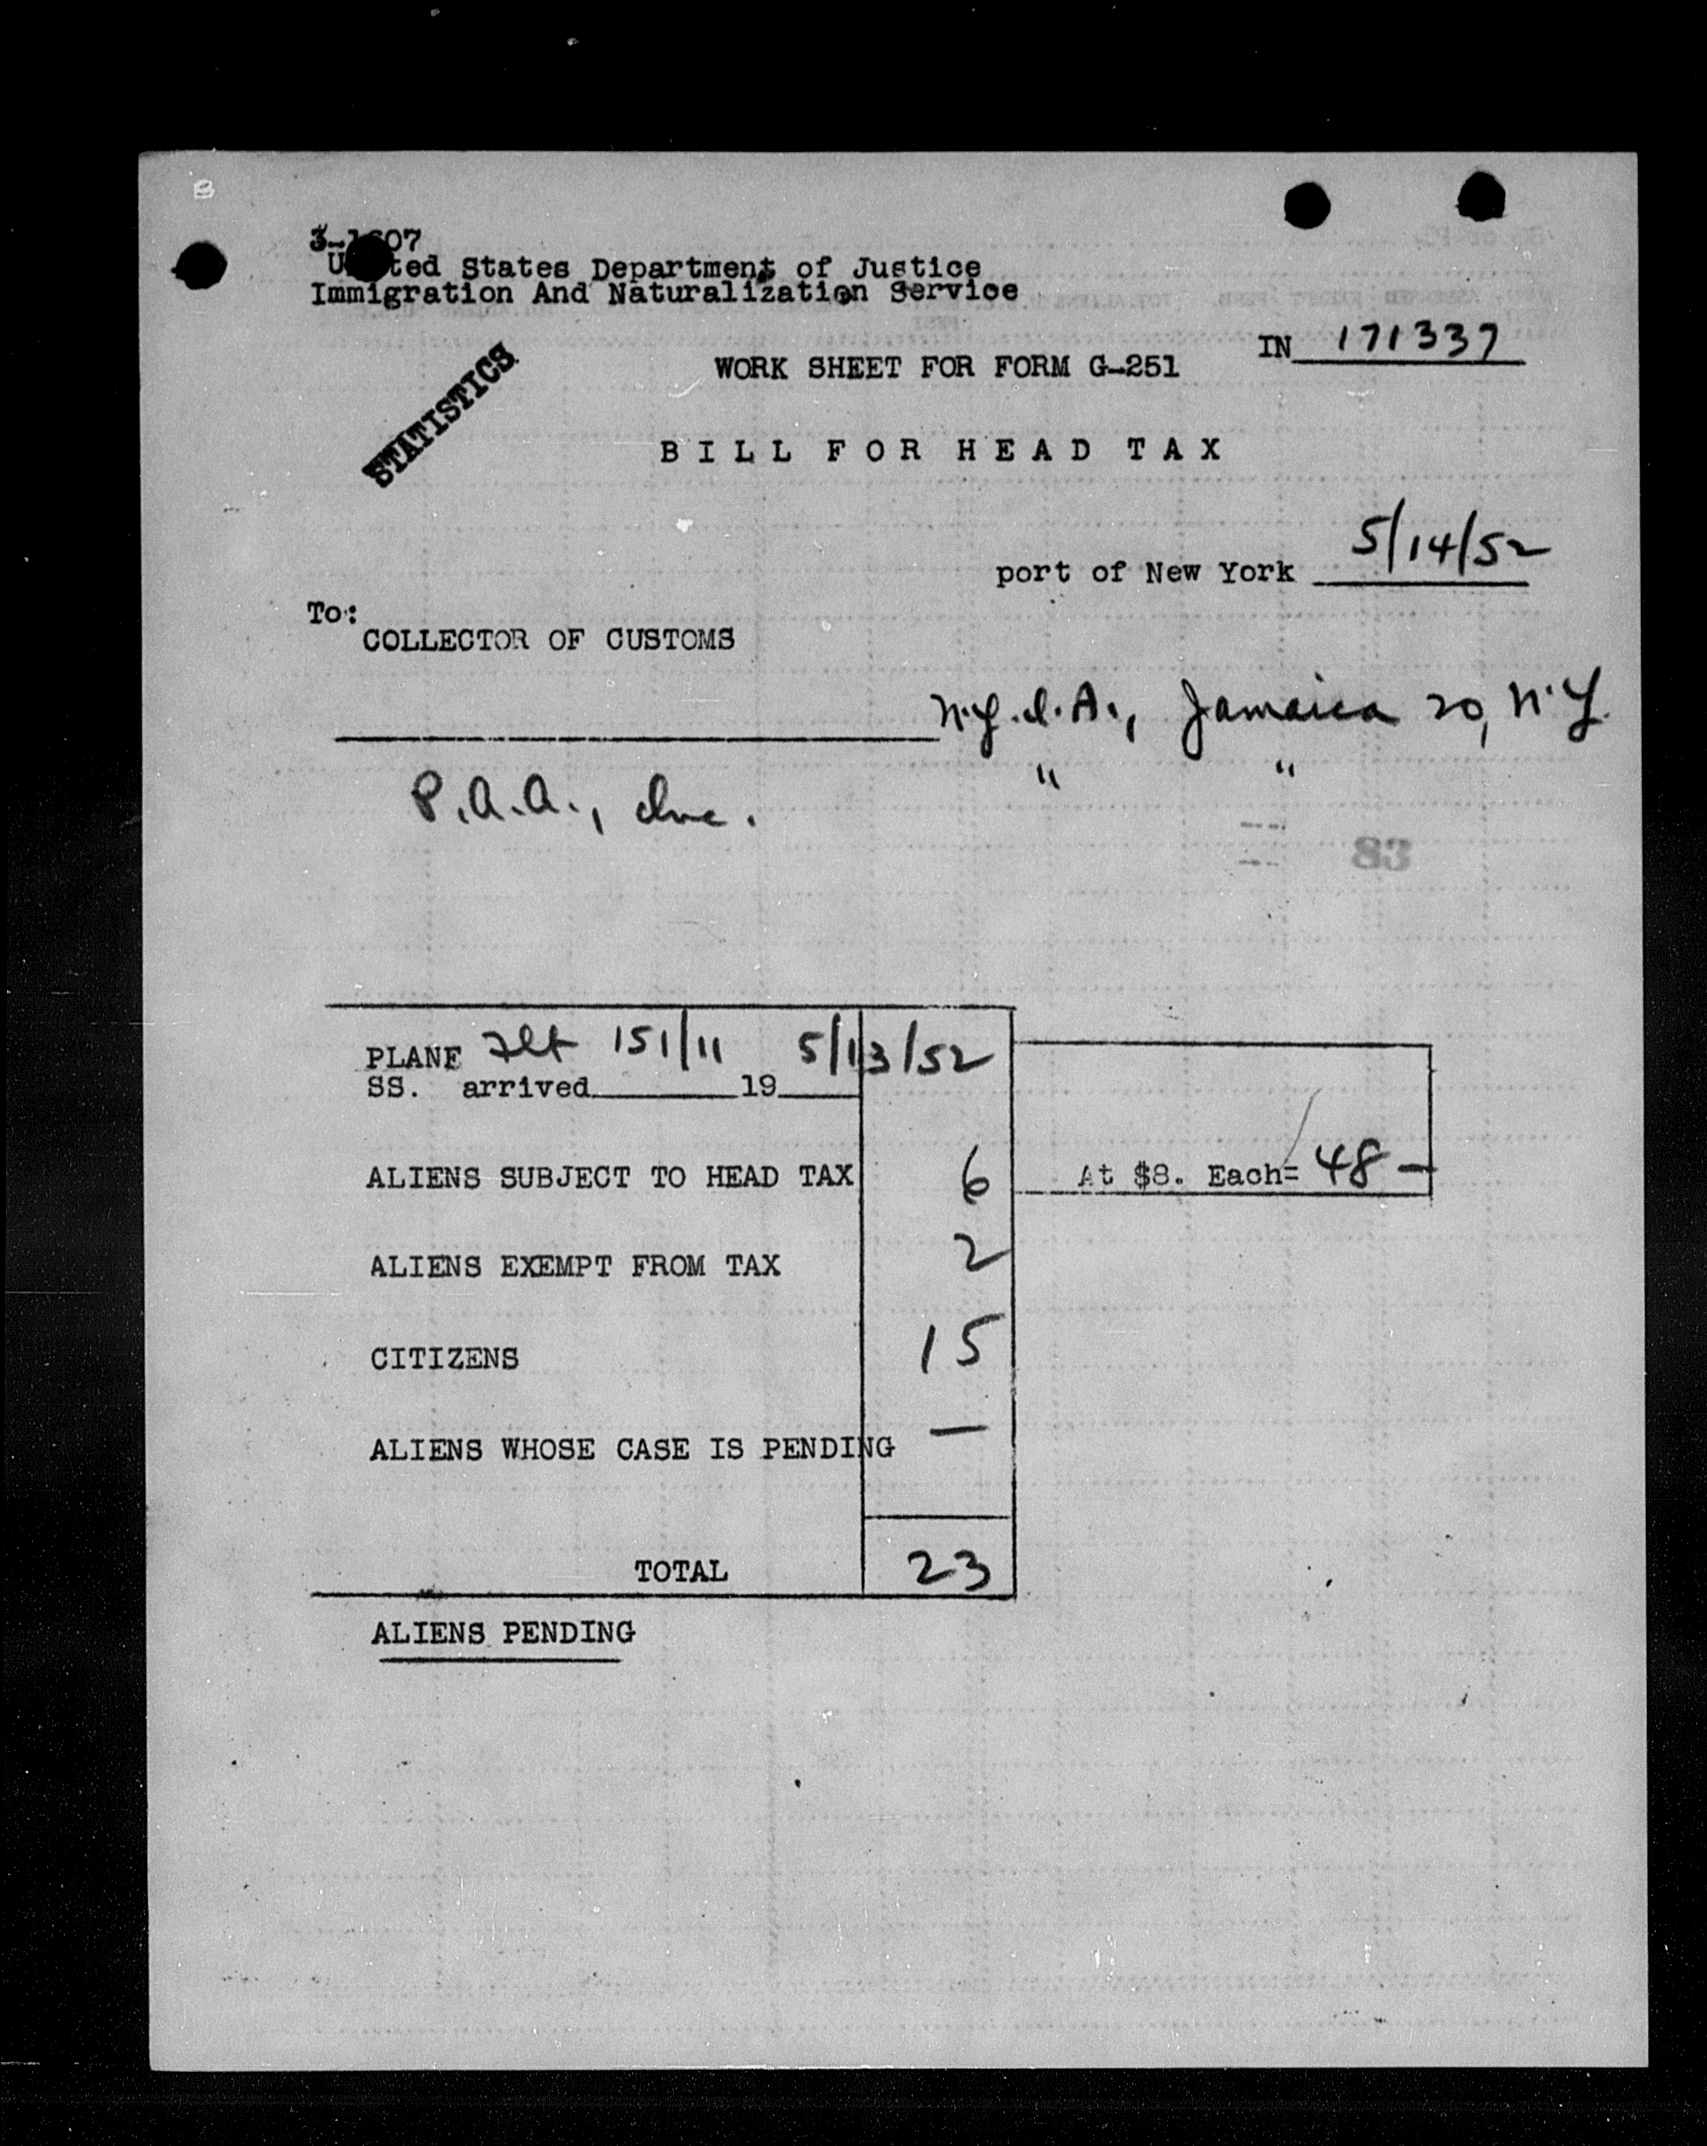 3-1607
United States Department of Justice
Immigration And Naturalization Service
IN 171337
WORK SHEET FOR FORM G-251
STATISTICS
BILL FOR HEAD TAX
port of New York 5/14/52
To:
COLLECTOR OF CUSTOMS
N.Y.I.A., Jamaica 20, N.Y.
P.A.A., Inc. " "
83
PLANE Flt 151/11 5/13/52
SS. arrived 19
ALIENS SUBJECT TO HEAD TAX 6 At $8. Each= 48 —
ALIENS EXEMPT FROM TAX 2
CITIZENS 15
ALIENS WHOSE CASE IS PENDING —
TOTAL 23
ALIENS PENDING